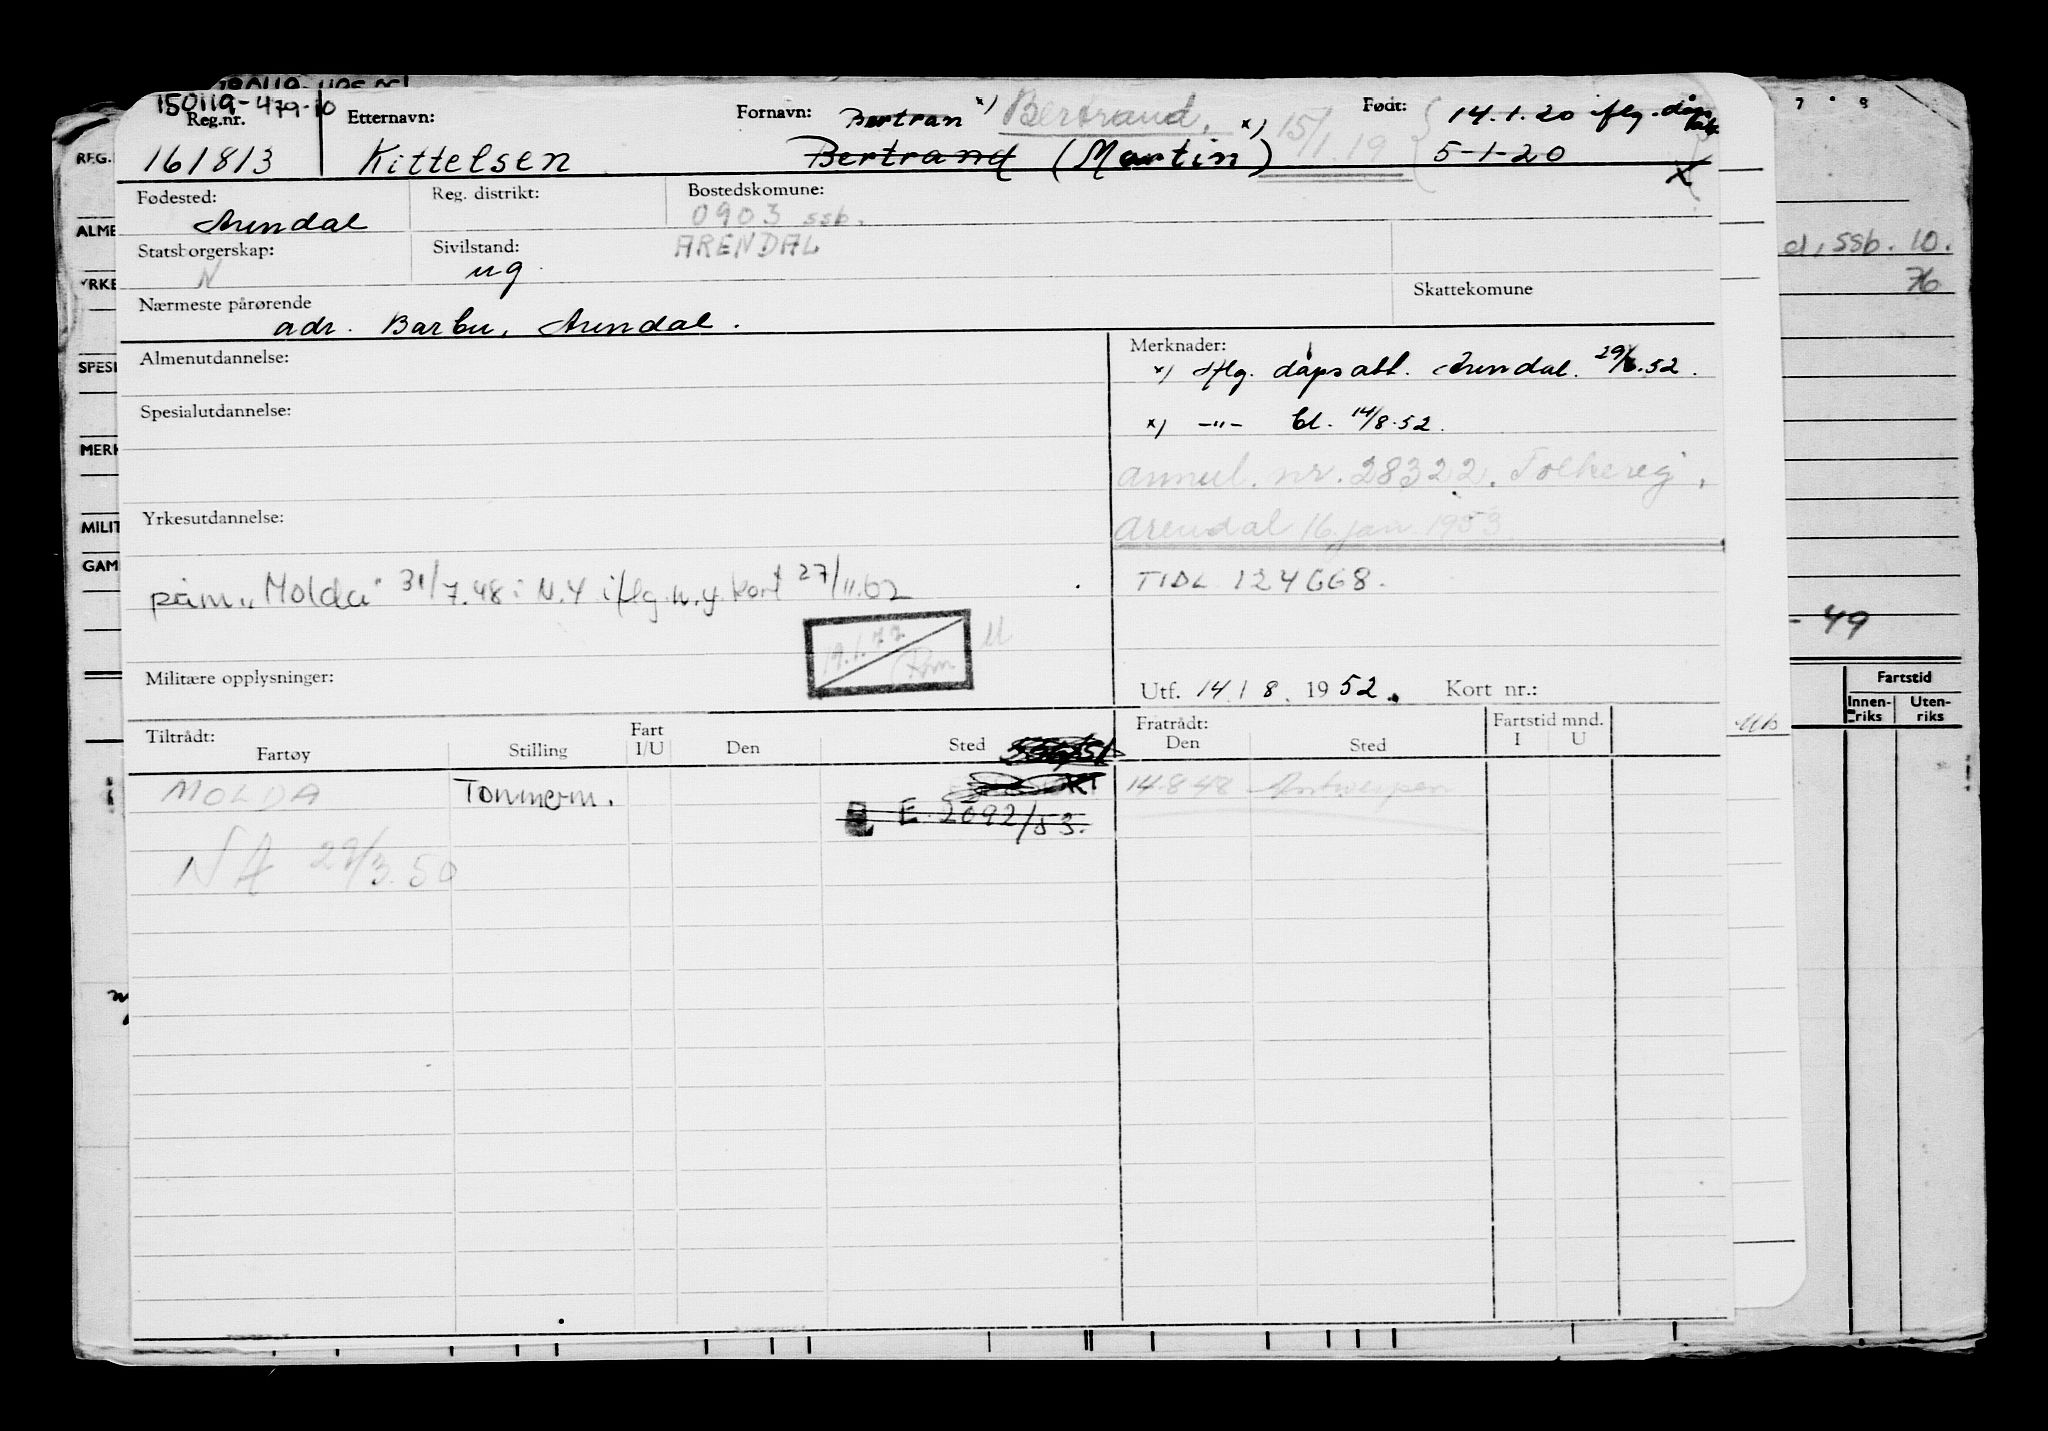 150119-479-10
Reg.nr. Etternavn: Fornavn: Bertran x) Bertrand. Født: 14.1.20 iflg. dåp
161813 Kittelsen Bertrand (Martin) x) 15/1.19 5-1-20
Fødested: Reg. distrikt: Bostedskomune:
Arendal 0903 ssb.
Statsborgerskap: Sivilstand: ARENDAL
N ug
Nærmeste pårørende Skattekomune
adr. Barbu, Arendal.
Almenutdannelse: Merknader:
x) Iflg. dåpsatt. Arendal. 29/3.52.
Spesialutdannelse:
x) -"- bl. 14/8.52.
annul. nr. 28322. Folkereg.
Yrkesutdannelse:
Arendal 16. jan 1953.
påm. "Molda" 31/7.48 i N.Y iflg. n.y. kort 27/11.62
TIDL 124668.
19.1.77 M
Militære opplysninger: Utf. 14/8. 1952. Kort nr.:
Tiltrådt: Fart Fratrådt: Fartstid mnd.
Fartøy Stilling I/U Den Sted Den Sted I U
MOLDA Tømmerm. 14.8.48 Antwerpen
E. 2692/53.
NA 29/3.50
REG.
ALME
YRKE
SPESI
MERK
MILIT
GAM
7 8
d, ssb. 10.
76
- 49
Fartstid
Innen- Uten-
riks riks